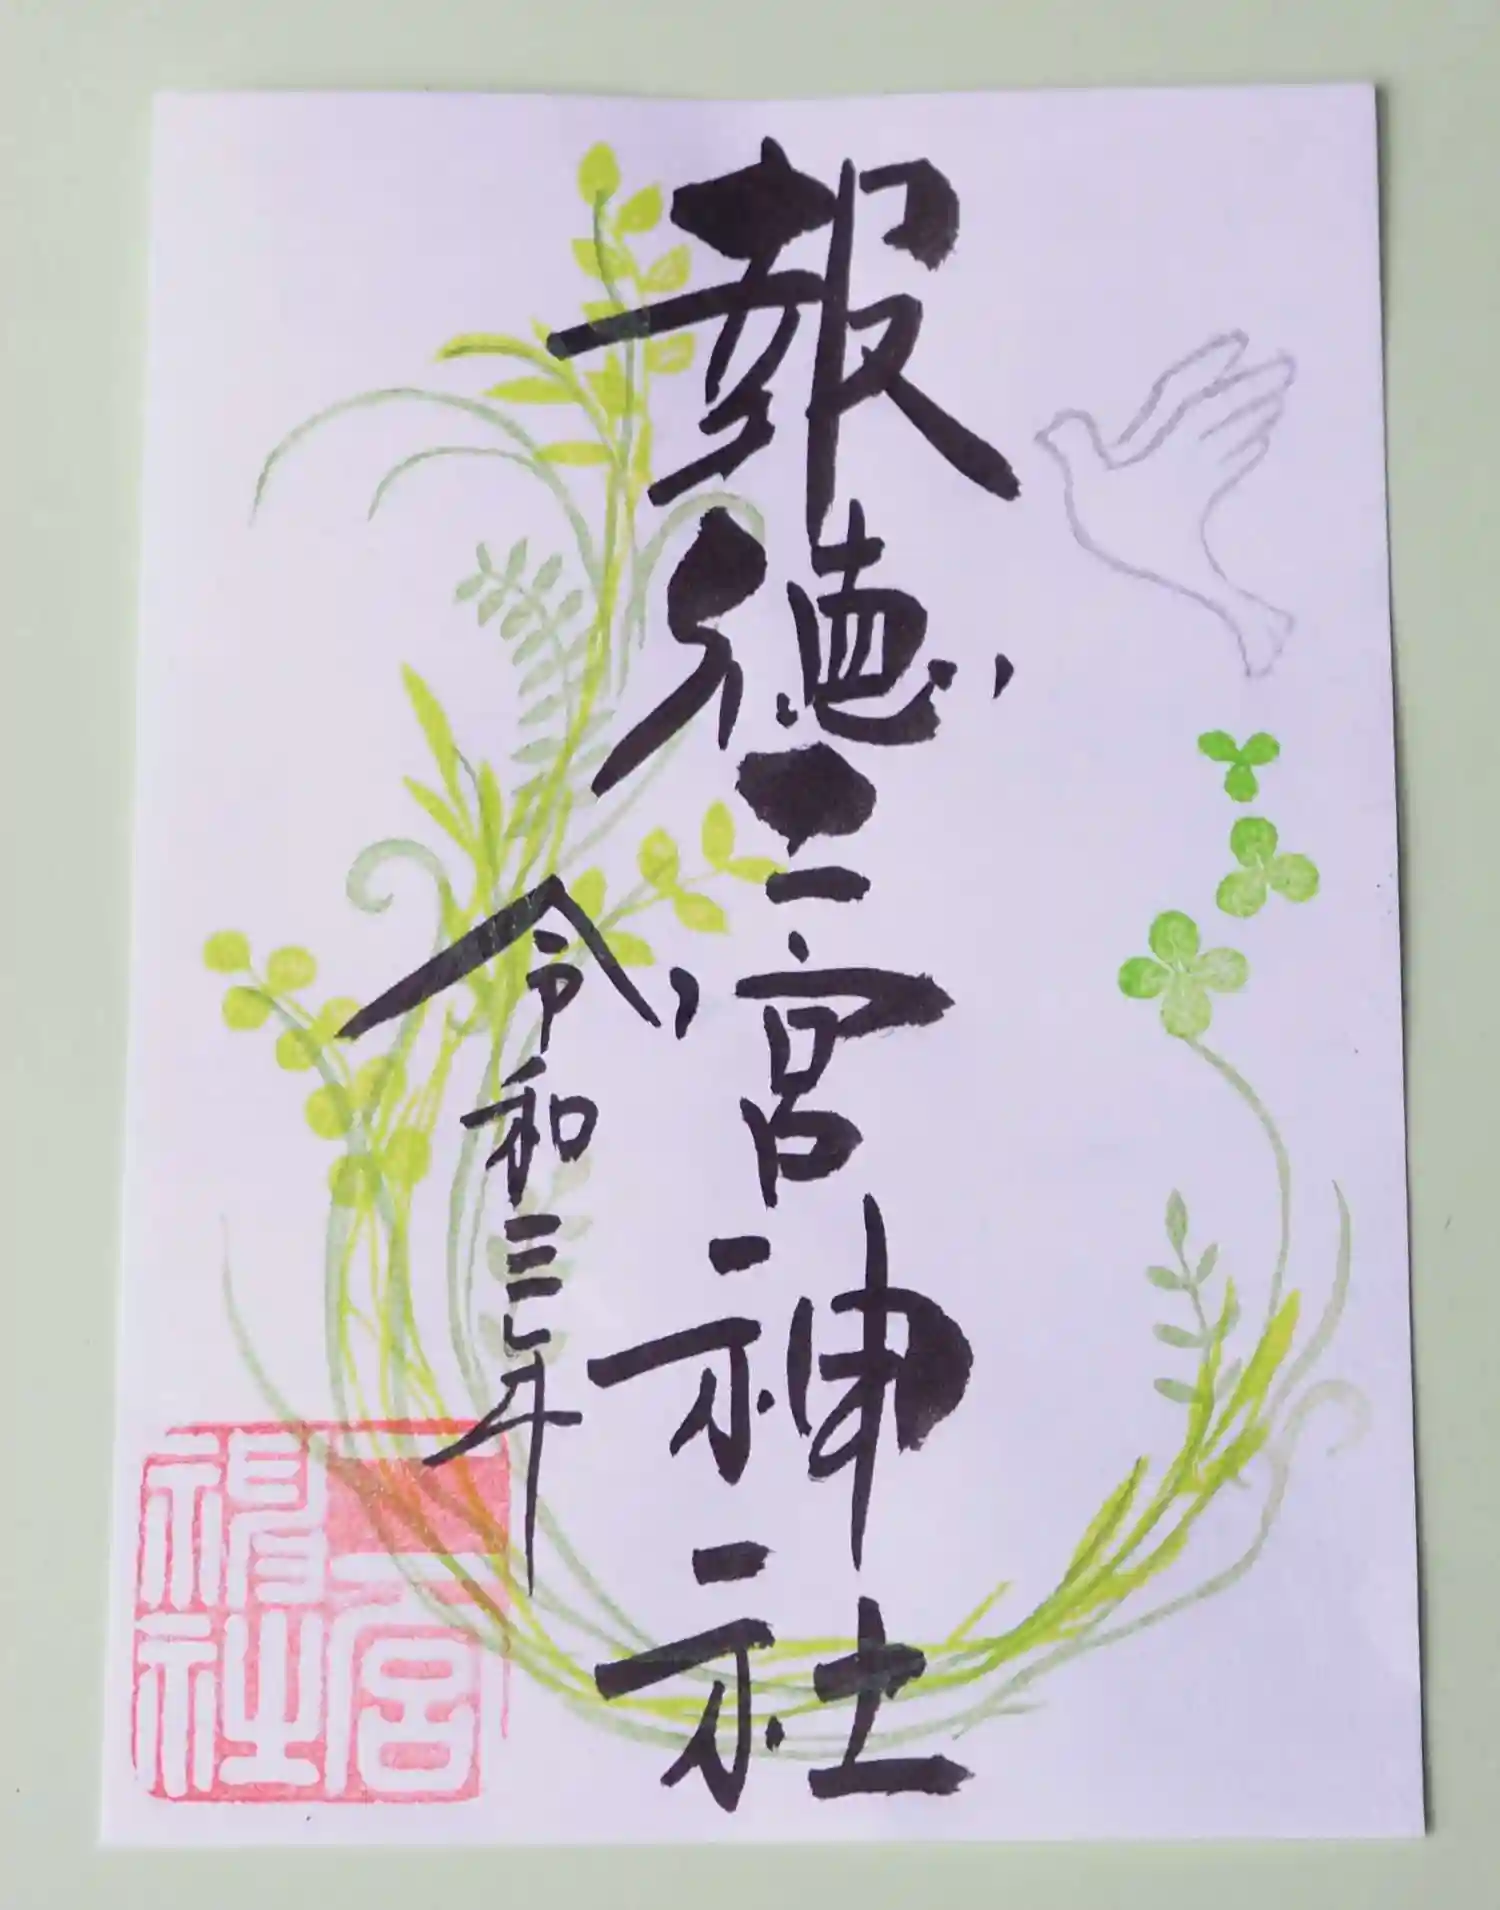 報徳二宮神社
令和三年
二宮神社